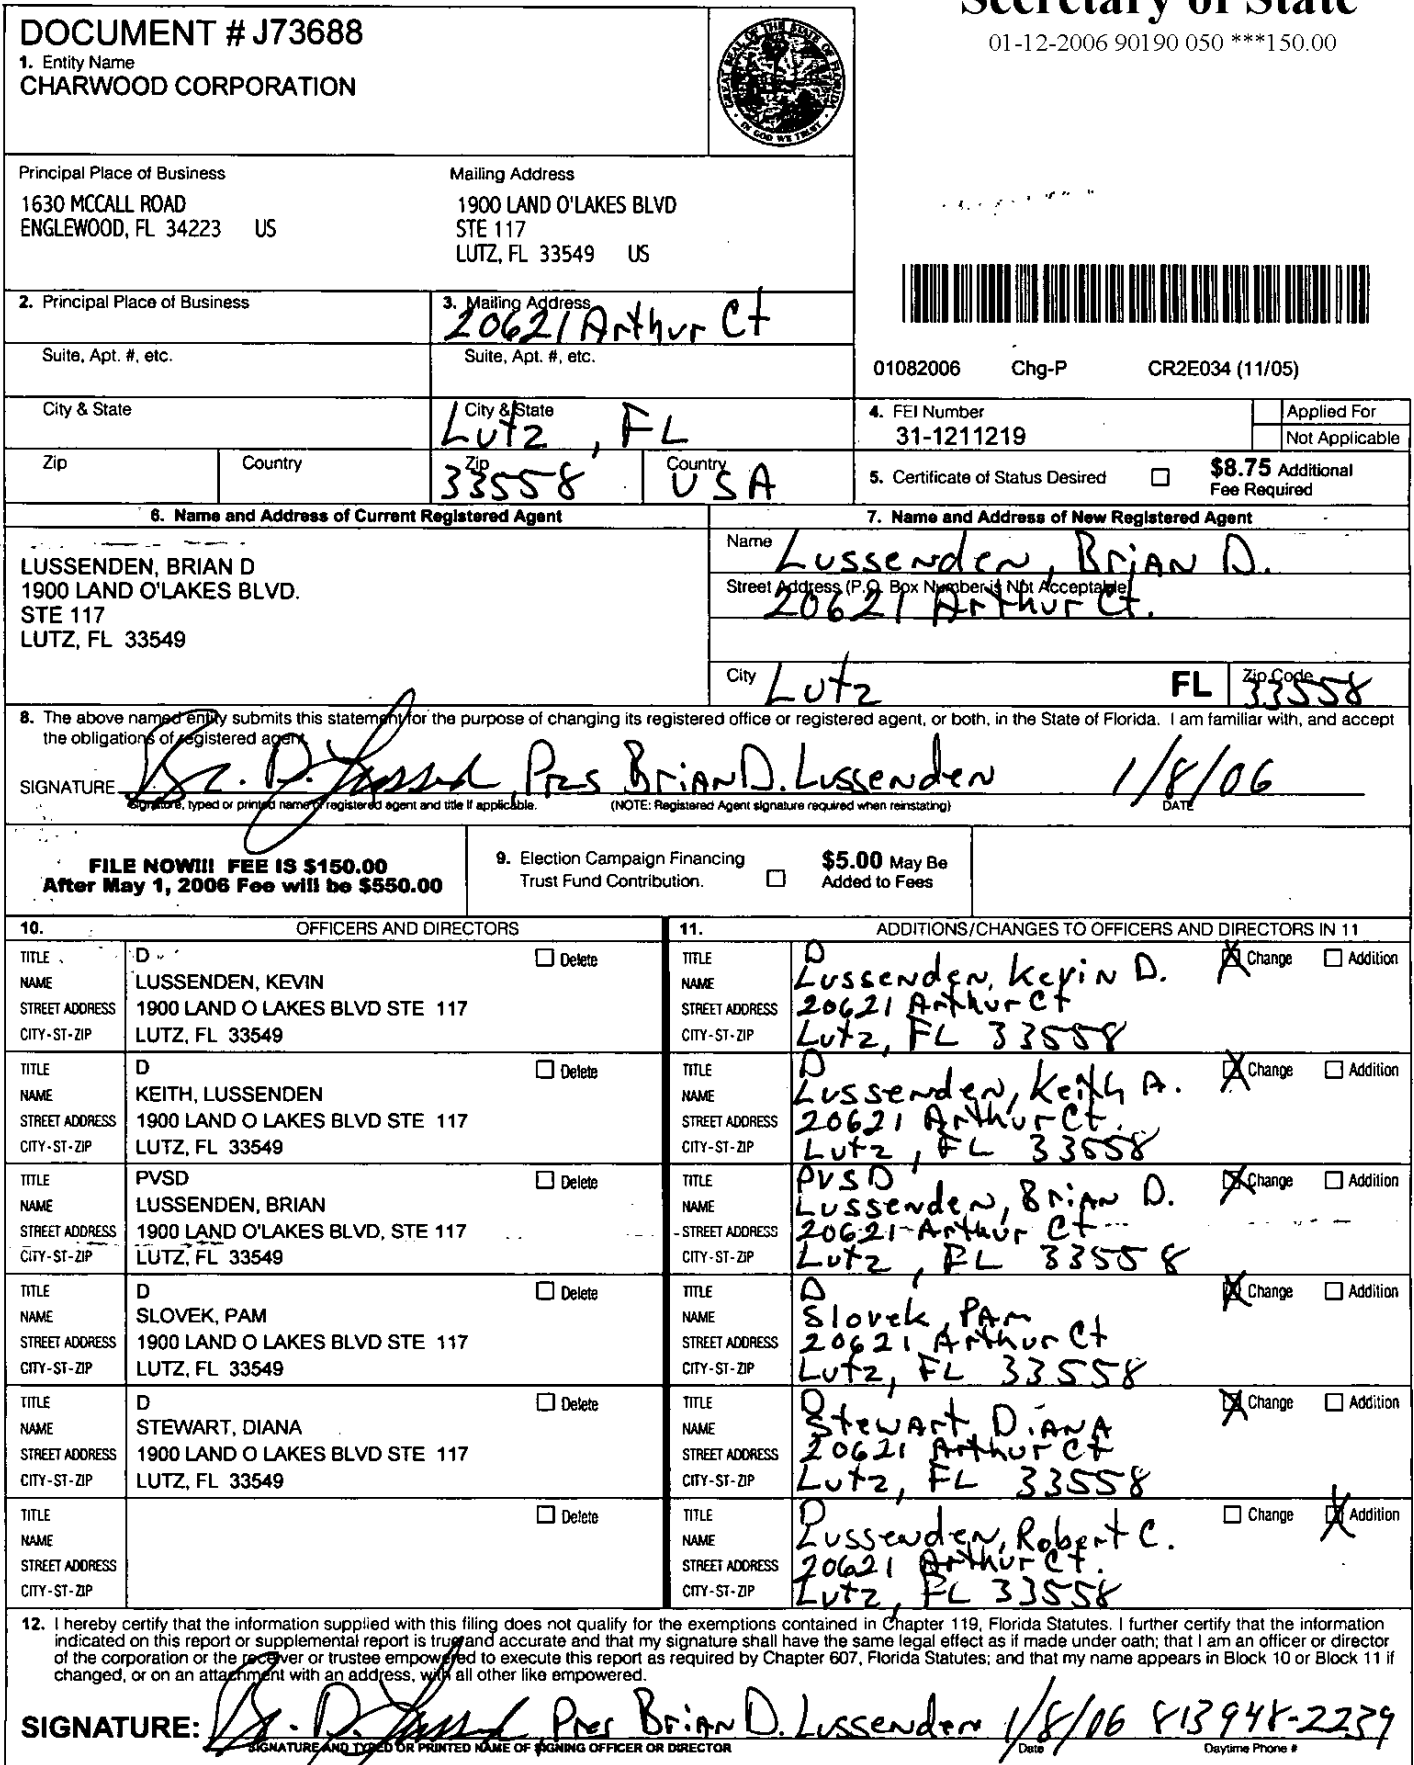 Secretary of State
01-12-2006 90190 050 ***150.00
DOCUMENT # J73688
1. Entity Name
CHARWOOD CORPORATION
GREAT SEAL OF THE STATE OF FLORIDA
IN GOD WE TRUST
Principal Place of Business
1630 MCCALL ROAD
ENGLEWOOD, FL 34223 US
Mailing Address
1900 LAND O'LAKES BLVD
STE 117
LUTZ, FL 33549 US
2. Principal Place of Business
3. Mailing Address
20621 Arthur Ct
Suite, Apt. #, etc.
Suite, Apt. #, etc.
01082006 Chg-P CR2E034 (11/05)
City & State
City & State
Lutz, FL
4. FEI Number
31-1211219
Applied For
Not Applicable
Zip
Country
Zip
33558
Country
USA
5. Certificate of Status Desired
$8.75 Additional
Fee Required
6. Name and Address of Current Registered Agent
LUSSENDEN, BRIAN D
1900 LAND O'LAKES BLVD.
STE 117
LUTZ, FL 33549
7. Name and Address of New Registered Agent
Name
Lussenden, Brian D.
Street Address (P.O. Box Number is Not Acceptable)
20621 Arthur Ct.
City Lutz FL Zip Code 33558
8. The above named entity submits this statement for the purpose of changing its registered office or registered agent, or both, in the State of Florida. I am familiar with, and accept
the obligations of registered agent.
SIGNATURE Br. D. Lussend, Pres Brian D. Lussenden 1/8/06
Signature, typed or printed name of registered agent and title if applicable. (NOTE: Registered Agent signature required when reinstating) DATE
FILE NOW!!! FEE IS $150.00
After May 1, 2006 Fee will be $550.00
9. Election Campaign Financing
Trust Fund Contribution.
$5.00 May Be
Added to Fees
10. OFFICERS AND DIRECTORS
TITLE D Delete
NAME LUSSENDEN, KEVIN
STREET ADDRESS 1900 LAND O LAKES BLVD STE 117
CITY-ST-ZIP LUTZ, FL 33549
TITLE D Delete
NAME KEITH, LUSSENDEN
STREET ADDRESS 1900 LAND O LAKES BLVD STE 117
CITY-ST-ZIP LUTZ, FL 33549
TITLE PVSD Delete
NAME LUSSENDEN, BRIAN
STREET ADDRESS 1900 LAND O'LAKES BLVD, STE 117
CITY-ST-ZIP LUTZ, FL 33549
TITLE D Delete
NAME SLOVEK, PAM
STREET ADDRESS 1900 LAND O LAKES BLVD STE 117
CITY-ST-ZIP LUTZ, FL 33549
TITLE D Delete
NAME STEWART, DIANA
STREET ADDRESS 1900 LAND O LAKES BLVD STE 117
CITY-ST-ZIP LUTZ, FL 33549
TITLE Delete
NAME
STREET ADDRESS
CITY-ST-ZIP
11. ADDITIONS/CHANGES TO OFFICERS AND DIRECTORS IN 11
TITLE D Change Addition
NAME Lussenden, Kevin D.
STREET ADDRESS 20621 Arthur Ct
CITY-ST-ZIP Lutz, FL 33558
TITLE D Change Addition
NAME Lussenden, Keith A.
STREET ADDRESS 20621 Arthur Ct.
CITY-ST-ZIP Lutz, FL 33558
TITLE PVSD Change Addition
NAME Lussenden, Brian D.
STREET ADDRESS 20621 Arthur Ct
CITY-ST-ZIP Lutz, FL 33558
TITLE D Change Addition
NAME Slovek, PAM
STREET ADDRESS 20621 Arthur Ct
CITY-ST-ZIP Lutz, FL 33558
TITLE D Change Addition
NAME Stewart, Diana
STREET ADDRESS 20621 Arthur Ct
CITY-ST-ZIP Lutz, FL 33558
TITLE D Change Addition
NAME Lussenden, Robert C.
STREET ADDRESS 20621 Arthur Ct.
CITY-ST-ZIP Lutz, FL 33558
12. I hereby certify that the information supplied with this filing does not qualify for the exemptions contained in Chapter 119, Florida Statutes. I further certify that the information
indicated on this report or supplemental report is true and accurate and that my signature shall have the same legal effect as if made under oath; that I am an officer or director
of the corporation or the receiver or trustee empowered to execute this report as required by Chapter 607, Florida Statutes; and that my name appears in Block 10 or Block 11 if
changed, or on an attachment with an address, with all other like empowered.
SIGNATURE: Br. D. Lussend Pres Brian D. Lussenden 1/8/06 813 948-2239
SIGNATURE AND TYPED OR PRINTED NAME OF SIGNING OFFICER OR DIRECTOR Date Daytime Phone #